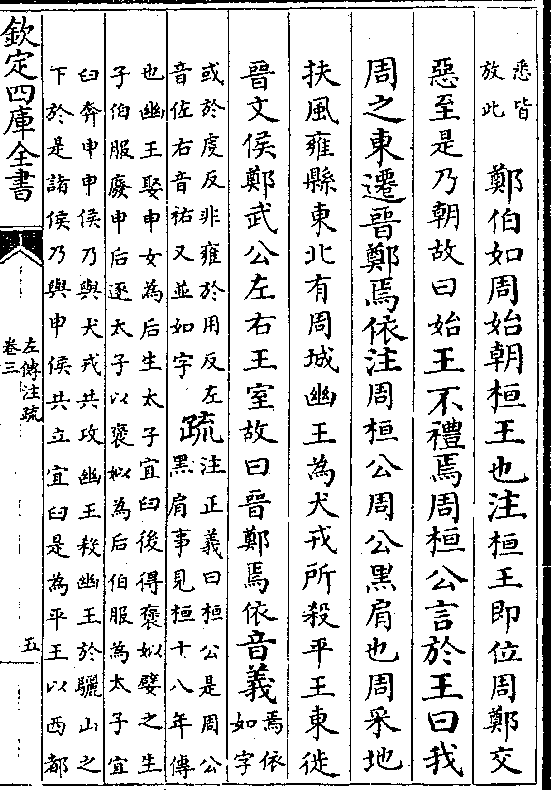 悉皆
放此
鄭伯如周始朝桓王也注桓王即位周鄭交
惡至是乃朝故曰始王不禮焉周桓公言於王曰我
周之東遷晉鄭焉依注周桓公周公黑肩也周采地
扶風雍縣東北有周城幽王為犬戎所殺平王東徙
晉文侯鄭武公左右王室故曰晉鄭焉依音義
焉依
如字
或於虔反非雍於用反左
音佐右音祐又並如字
疏
注正義曰桓公是周公
黑肩事見桓十八年傳
也幽王娶申女為后生太子宜臼後得褒姒嬖之生
子伯服廢申后逐太子以褒姒為后伯服為太子宜
臼奔申申侯乃與犬戎共攻幽王殺幽王於驪山之
下於是諸侯乃與申侯共立宜臼是為平王以西都
欽定四庫全書
左傳注疏
卷三
五